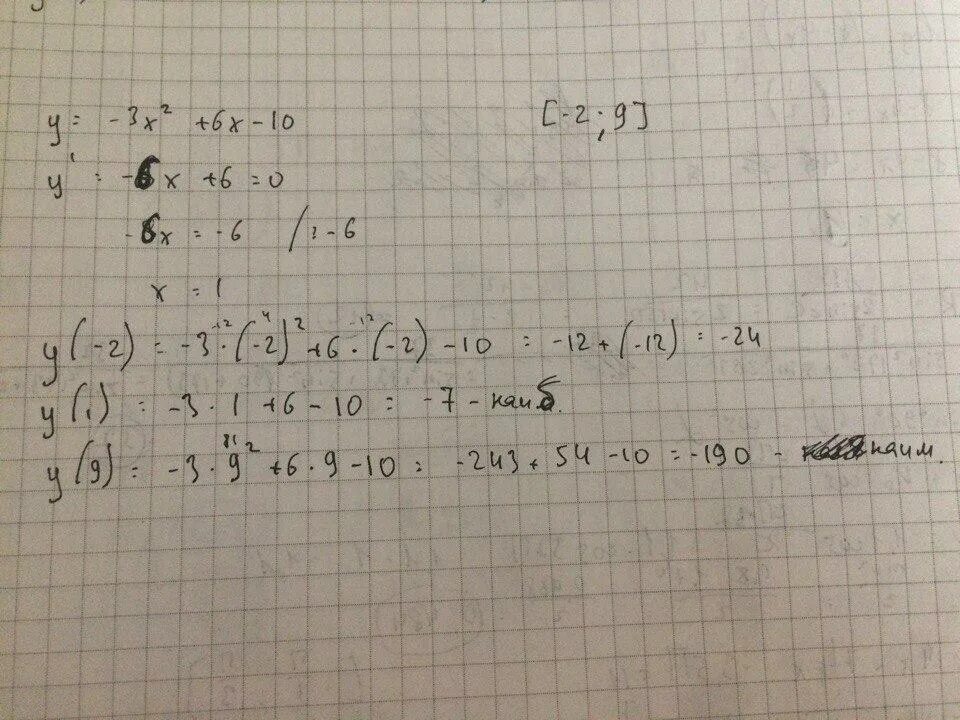 y = -3x² +6x-10 [-2;9]
y' = -6x +6=0
-6x = -6 /:-6
x = 1
y(-2) = -3·(-2)²+6·(-2)-10 = -12+(-12) = -24
y(1) = -3·1+6-10 = -7 - наиб.
y(9) = -3·9²+6·9-10= -243+54-10=-190 - наим.